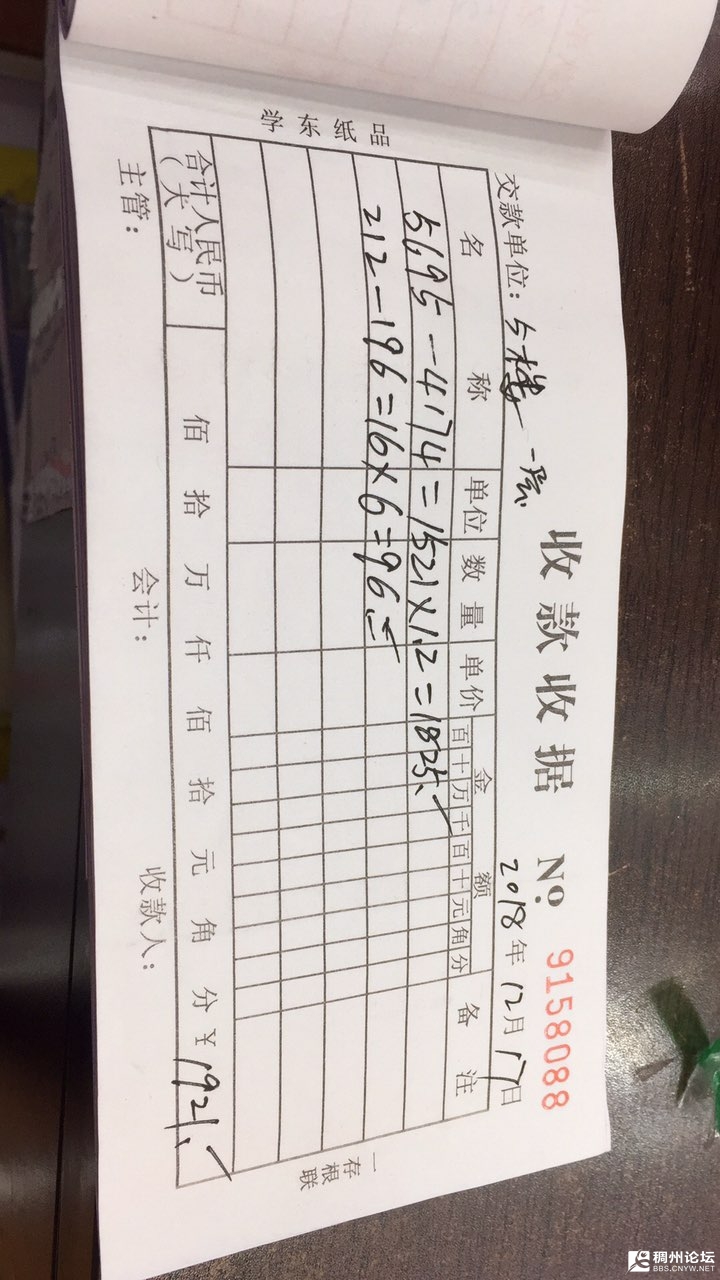 收款收据 №. 9158088
交款单位：5楼一层 2018年12月17日
名称 单位 数量 单价 金额 备注
百十万千百十元角分
5695-4174=1521×1.2=1825.
212-196=16×6=96.
合计人民币（大写） 佰 拾 万 仟 佰 拾 元 角 分 ¥ 1921.
主管： 会计： 收款人：
学东纸品
一存根联
稠州论坛
BBS.CNYW.NET